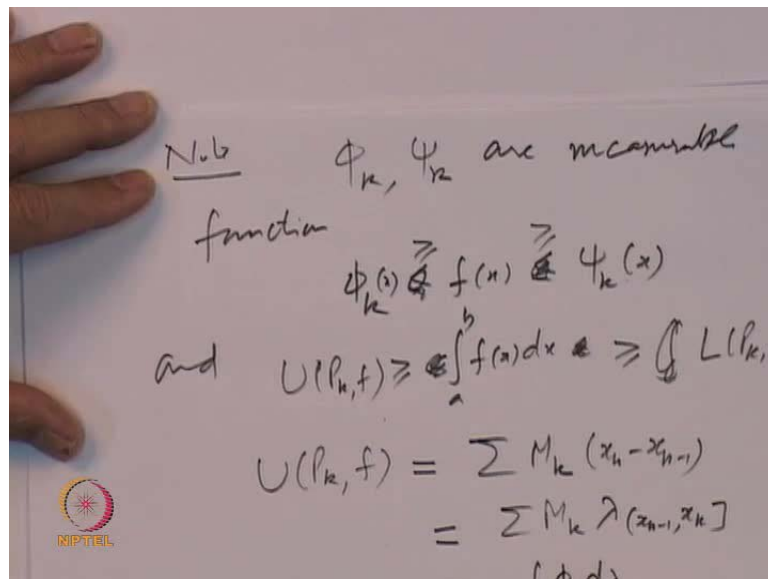 Note Φₖ, Ψₖ are measurable
function
Φₖ(x) ≥ f(x) ≥ Ψₖ(x)
and U(Pₖ,f) ≥ ∫ₐᵇ f(x)dx ≥ L(Pₖ,
U(Pₖ,f) = ∑ Mₖ (xₙ - xₙ₋₁)
= ∑ Mₖ λ(xₙ₋₁, xₖ]
NPTEL